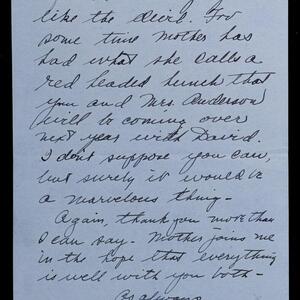 like the devil. For
some time Mother has
had what she calls a
red headed hunch that
you and Mrs. Anderson
will be coming over
next year with David.
I don't suppose you can,
but surely it would be
a marvelous thing -
Again, thank you more than
I can say - Mother joins me
in the hope that everything
is well with you both -
As always